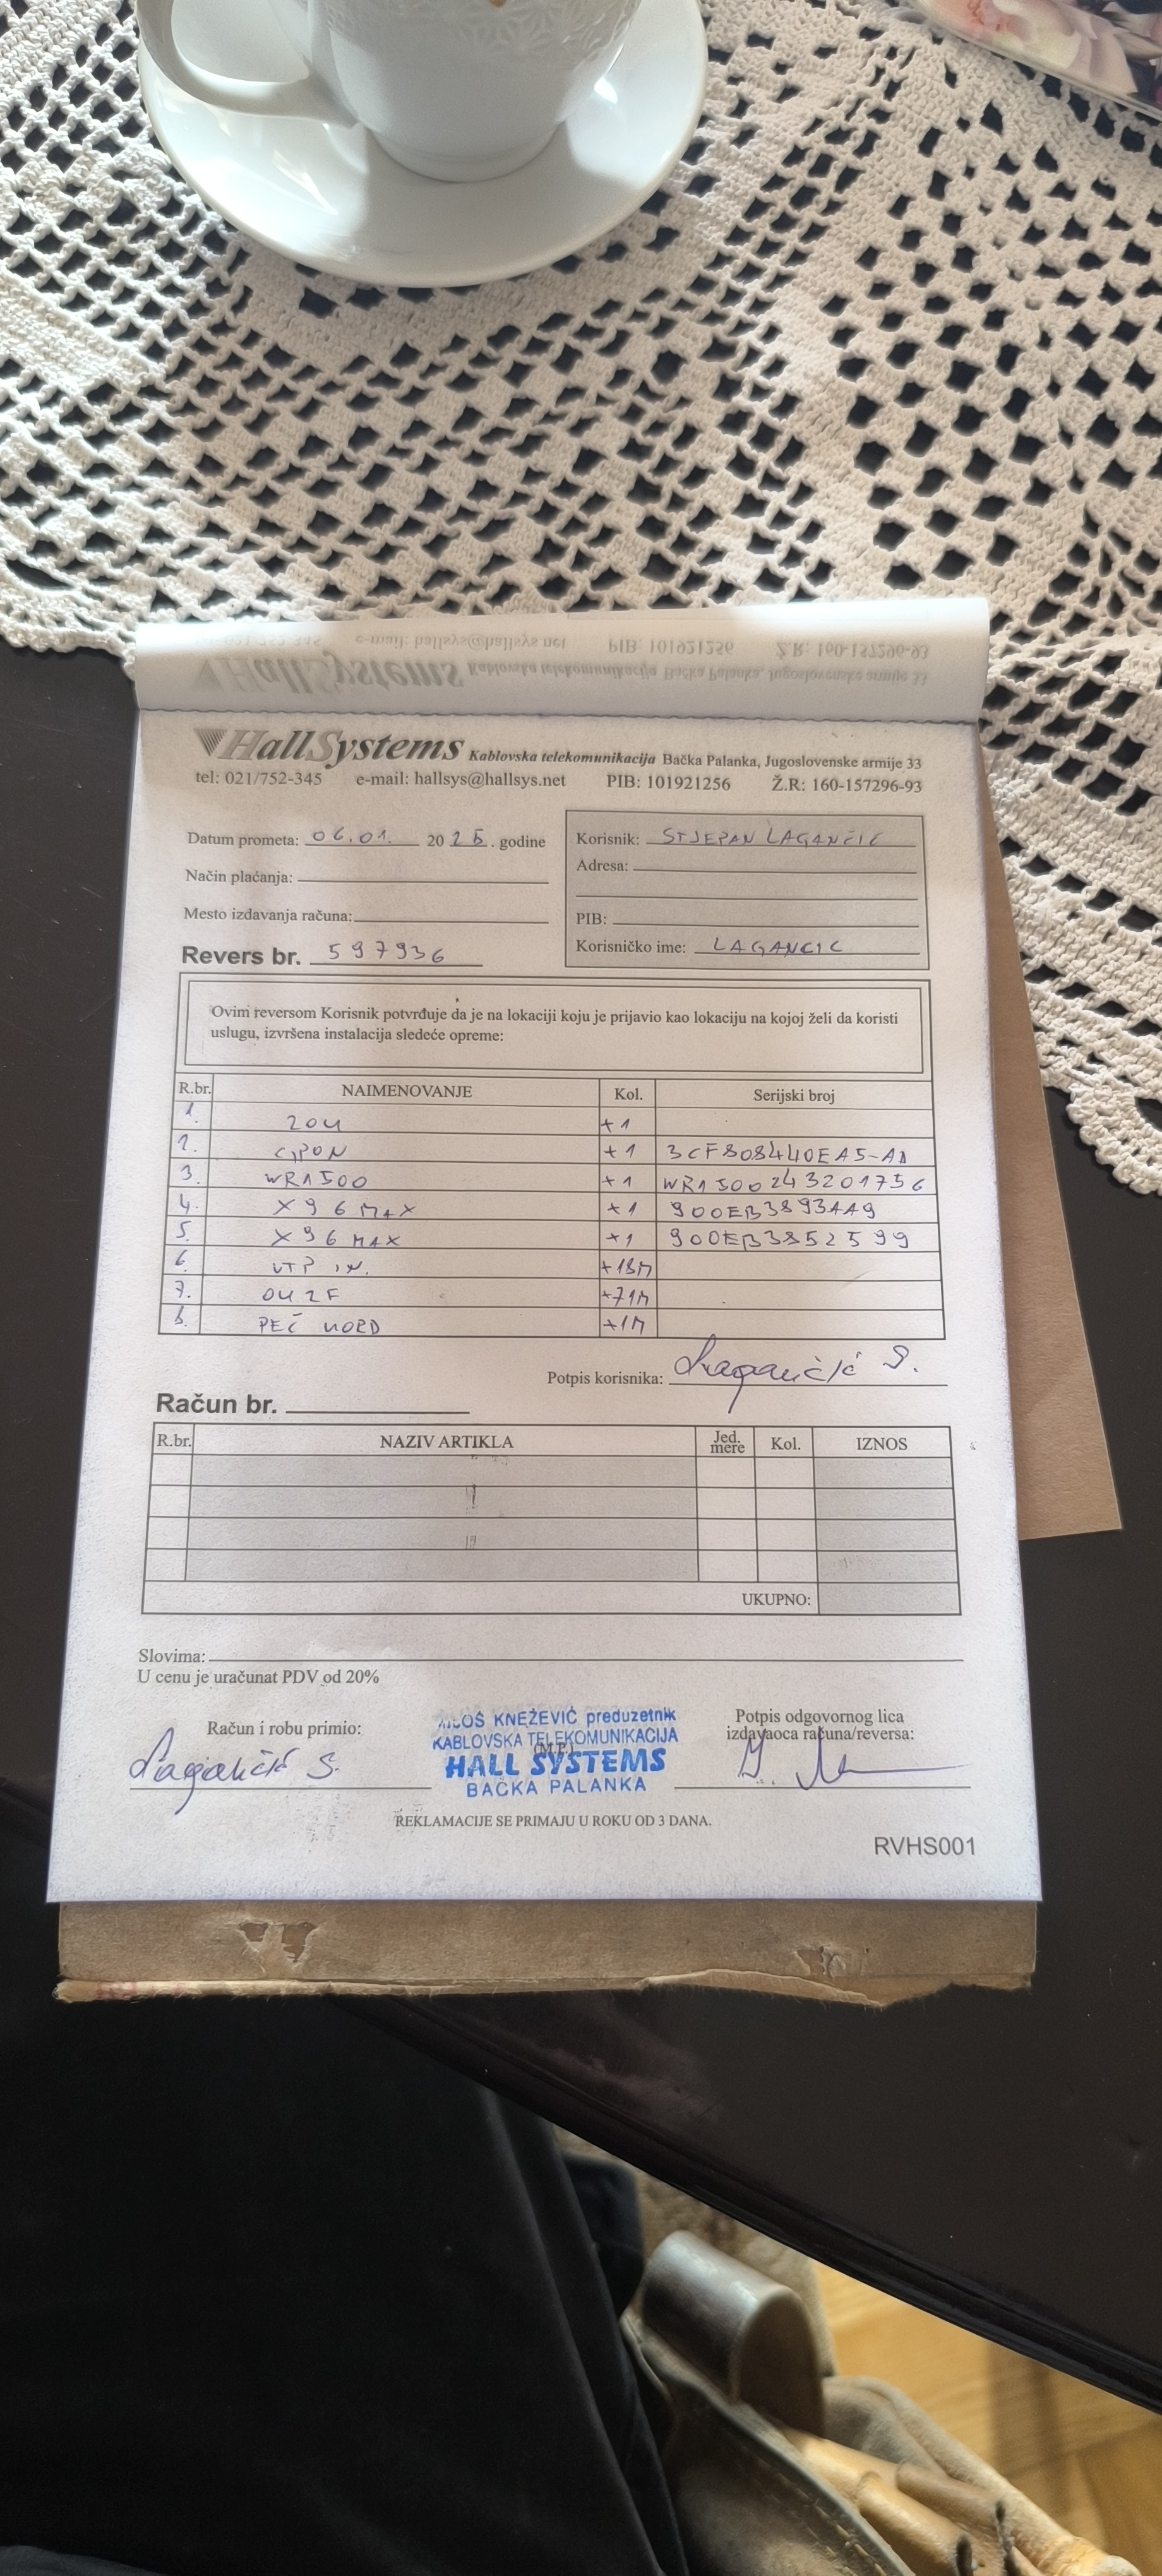 HallSystems Kablovska telekomunikacija Bačka Palanka, Jugoslovenske armije 33
tel: 021/752-345 e-mail: hallsys@hallsys.net PIB: 101921256 Ž.R: 160-157296-93
Datum prometa: 06.01. 2025. godine
Način plaćanja:
Mesto izdavanja računa:
Revers br. 597936
Korisnik: STJEPAN LAGANČIĆ
Adresa:
PIB:
Korisničko ime: LAGANCIC
Ovim reversom Korisnik potvrđuje da je na lokaciji koju je prijavio kao lokaciju na kojoj želi da koristi
uslugu, izvršena instalacija sledeće opreme:
R.br. NAIMENOVANJE Kol. Serijski broj
1. ZOU +1
2. GPON +1 3CF808440EA5-A1
3. WR1500 +1 WR1500243201756
4. X96 MAX +1 900EB3893AA9
5. X96 MAX +1 900EB3852599
6. UTP IN. +18M
7. OU 2F +71M
8. PEČ UORD +1M
Potpis korisnika: Lagančić S.
Račun br.
R.br. NAZIV ARTIKLA Jed. mere Kol. IZNOS
UKUPNO:
Slovima:
U cenu je uračunat PDV od 20%
Račun i robu primio:
Lagančić S.
MILOŠ KNEŽEVIĆ preduzetnik
KABLOVSKA TELEKOMUNIKACIJA
(M.P.)
HALL SYSTEMS
BAČKA PALANKA
Potpis odgovornog lica
izdavaoca računa/reversa:
REKLAMACIJE SE PRIMAJU U ROKU OD 3 DANA.
RVHS001